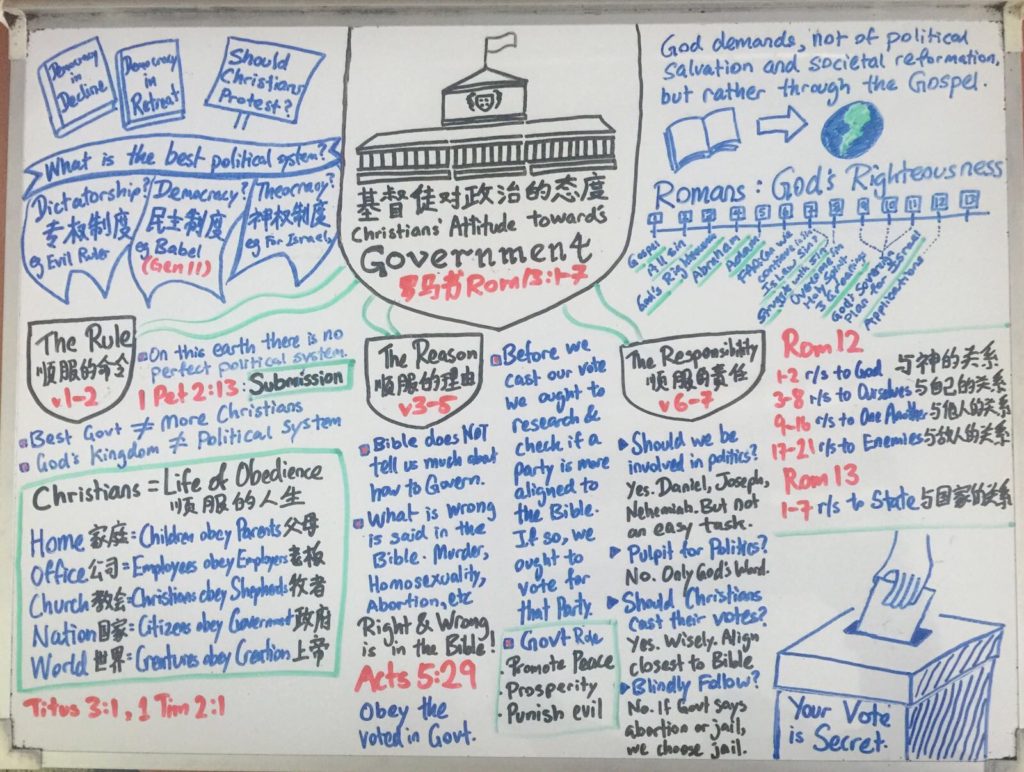 Democracy
in
Decline
Democracy
in
Retreat
Should
Christians
Protest?
What is the best political system?
Dictatorship?
专权制度
eg Evil Ruler
Democracy?
民主制度
eg Babel
(Gen 11)
Theocracy?
神权制度
eg For Israel
基督徒对政治的态度
Christians' Attitude towards
Government
罗马书 Rom 13:1-7
God demands, not of political
salvation and societal reformation,
but rather through the Gospel.
Romans: God's Righteousness
Gospel
All sin
God's Righteous
Abraham
Adam
Struggle with sin
Overcome in
Holy Spirit
God's Sovereign
Plan for Israel
Applications
The Rule
顺服的命令
v1-2
On this earth there is no
perfect political system.
1 Pet 2:13: Submission
Best Govt ≠ More Christians
God's Kingdom ≠ Political System
Christians = Life of Obedience
顺服的人生
Home 家庭 = Children obey Parents 父母
Office 公司 = Employees obey Employers 老板
Church 教会 = Christians obey Shepherds 牧者
Nation 国家 = Citizens obey Government 政府
World 世界 = Creatures obey Creation 上帝
Titus 3:1, 1 Tim 2:1
The Reason
顺服的理由
v3-5
Bible does NOT
tell us much about
how to Govern.
What is wrong
is said in the
Bible. Murder,
Homosexuality,
Abortion, etc
Right & Wrong
is in the Bible!
Acts 5:29
Obey the
voted in Govt.
Before we
cast our vote
we ought to
research &
check if a
Party is more
aligned to
the Bible.
If so, we
ought to
vote for
that Party.
Govt Role
· Promote Peace
· Prosperity
· Punish evil
The Responsibility
顺服的责任
v6-7
Should we be
involved in politics?
Yes. Daniel, Joseph,
Nehemiah. But not
an easy task.
Pulpit for Politics?
No. Only God's Word.
Should Christians
cast their votes?
Yes. Wisely. Align
closest to Bible
Blindly Follow?
No. If Govt says
abortion or jail,
we choose jail.
Rom 12
1-2 r/s to God 与神的关系
3-8 r/s to Ourselves 与自己的关系
9-16 r/s to One Another 与他人的关系
17-21 r/s to Enemies 与敌人的关系
Rom 13
1-7 r/s to State 与国家的关系
Your Vote
is Secret.